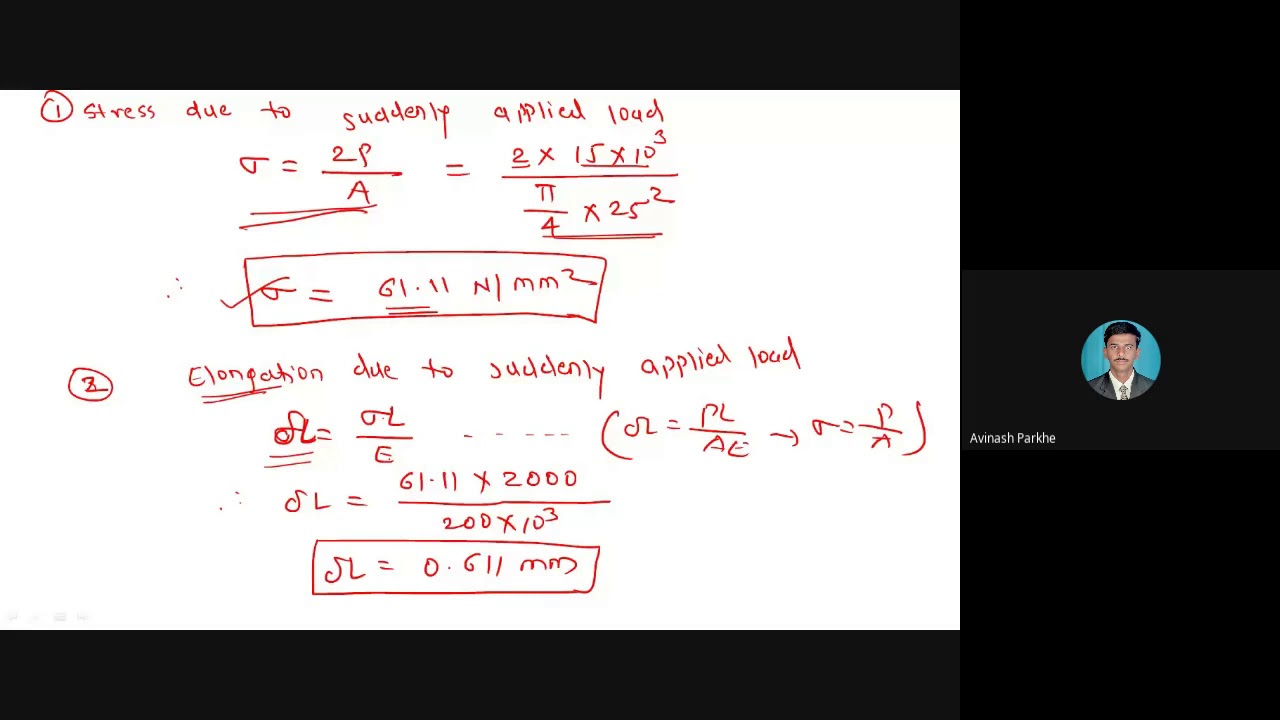 ① Stress due to suddenly applied load
σ = 2P/A = 2 × 15 × 10³ / (π/4 × 25²)
∴ σ = 61.11 N/mm²
② Elongation due to suddenly applied load
δL = σL/E ------ (δL = PL/AE → σ = P/A)
∴ δL = 61.11 × 2000 / 200 × 10³
δL = 0.611 mm
Avinash Parkhe